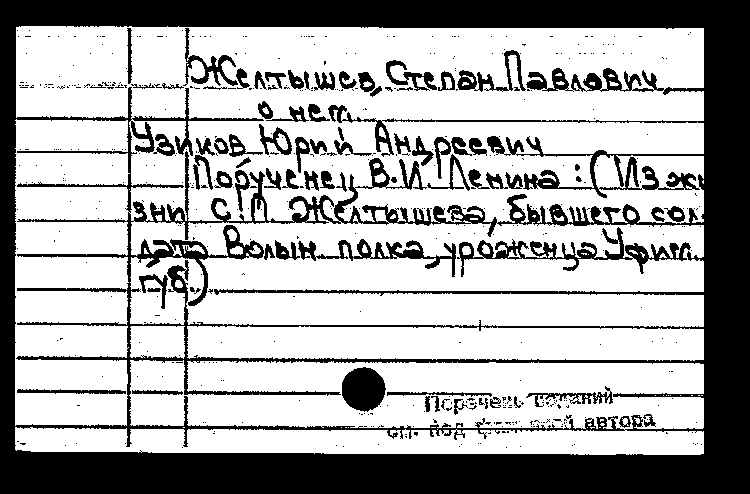 Желтышев, Степан Павлович,
о нем.
Узиков Юрий Андреевич
Порученец В.И. Ленина : (Из жи
зни С.П. Желтышева, бывшего сол-
дата Волын. полка, уроженца Уфим.
губ.).
Перечень изданий
см. под фамилией автора